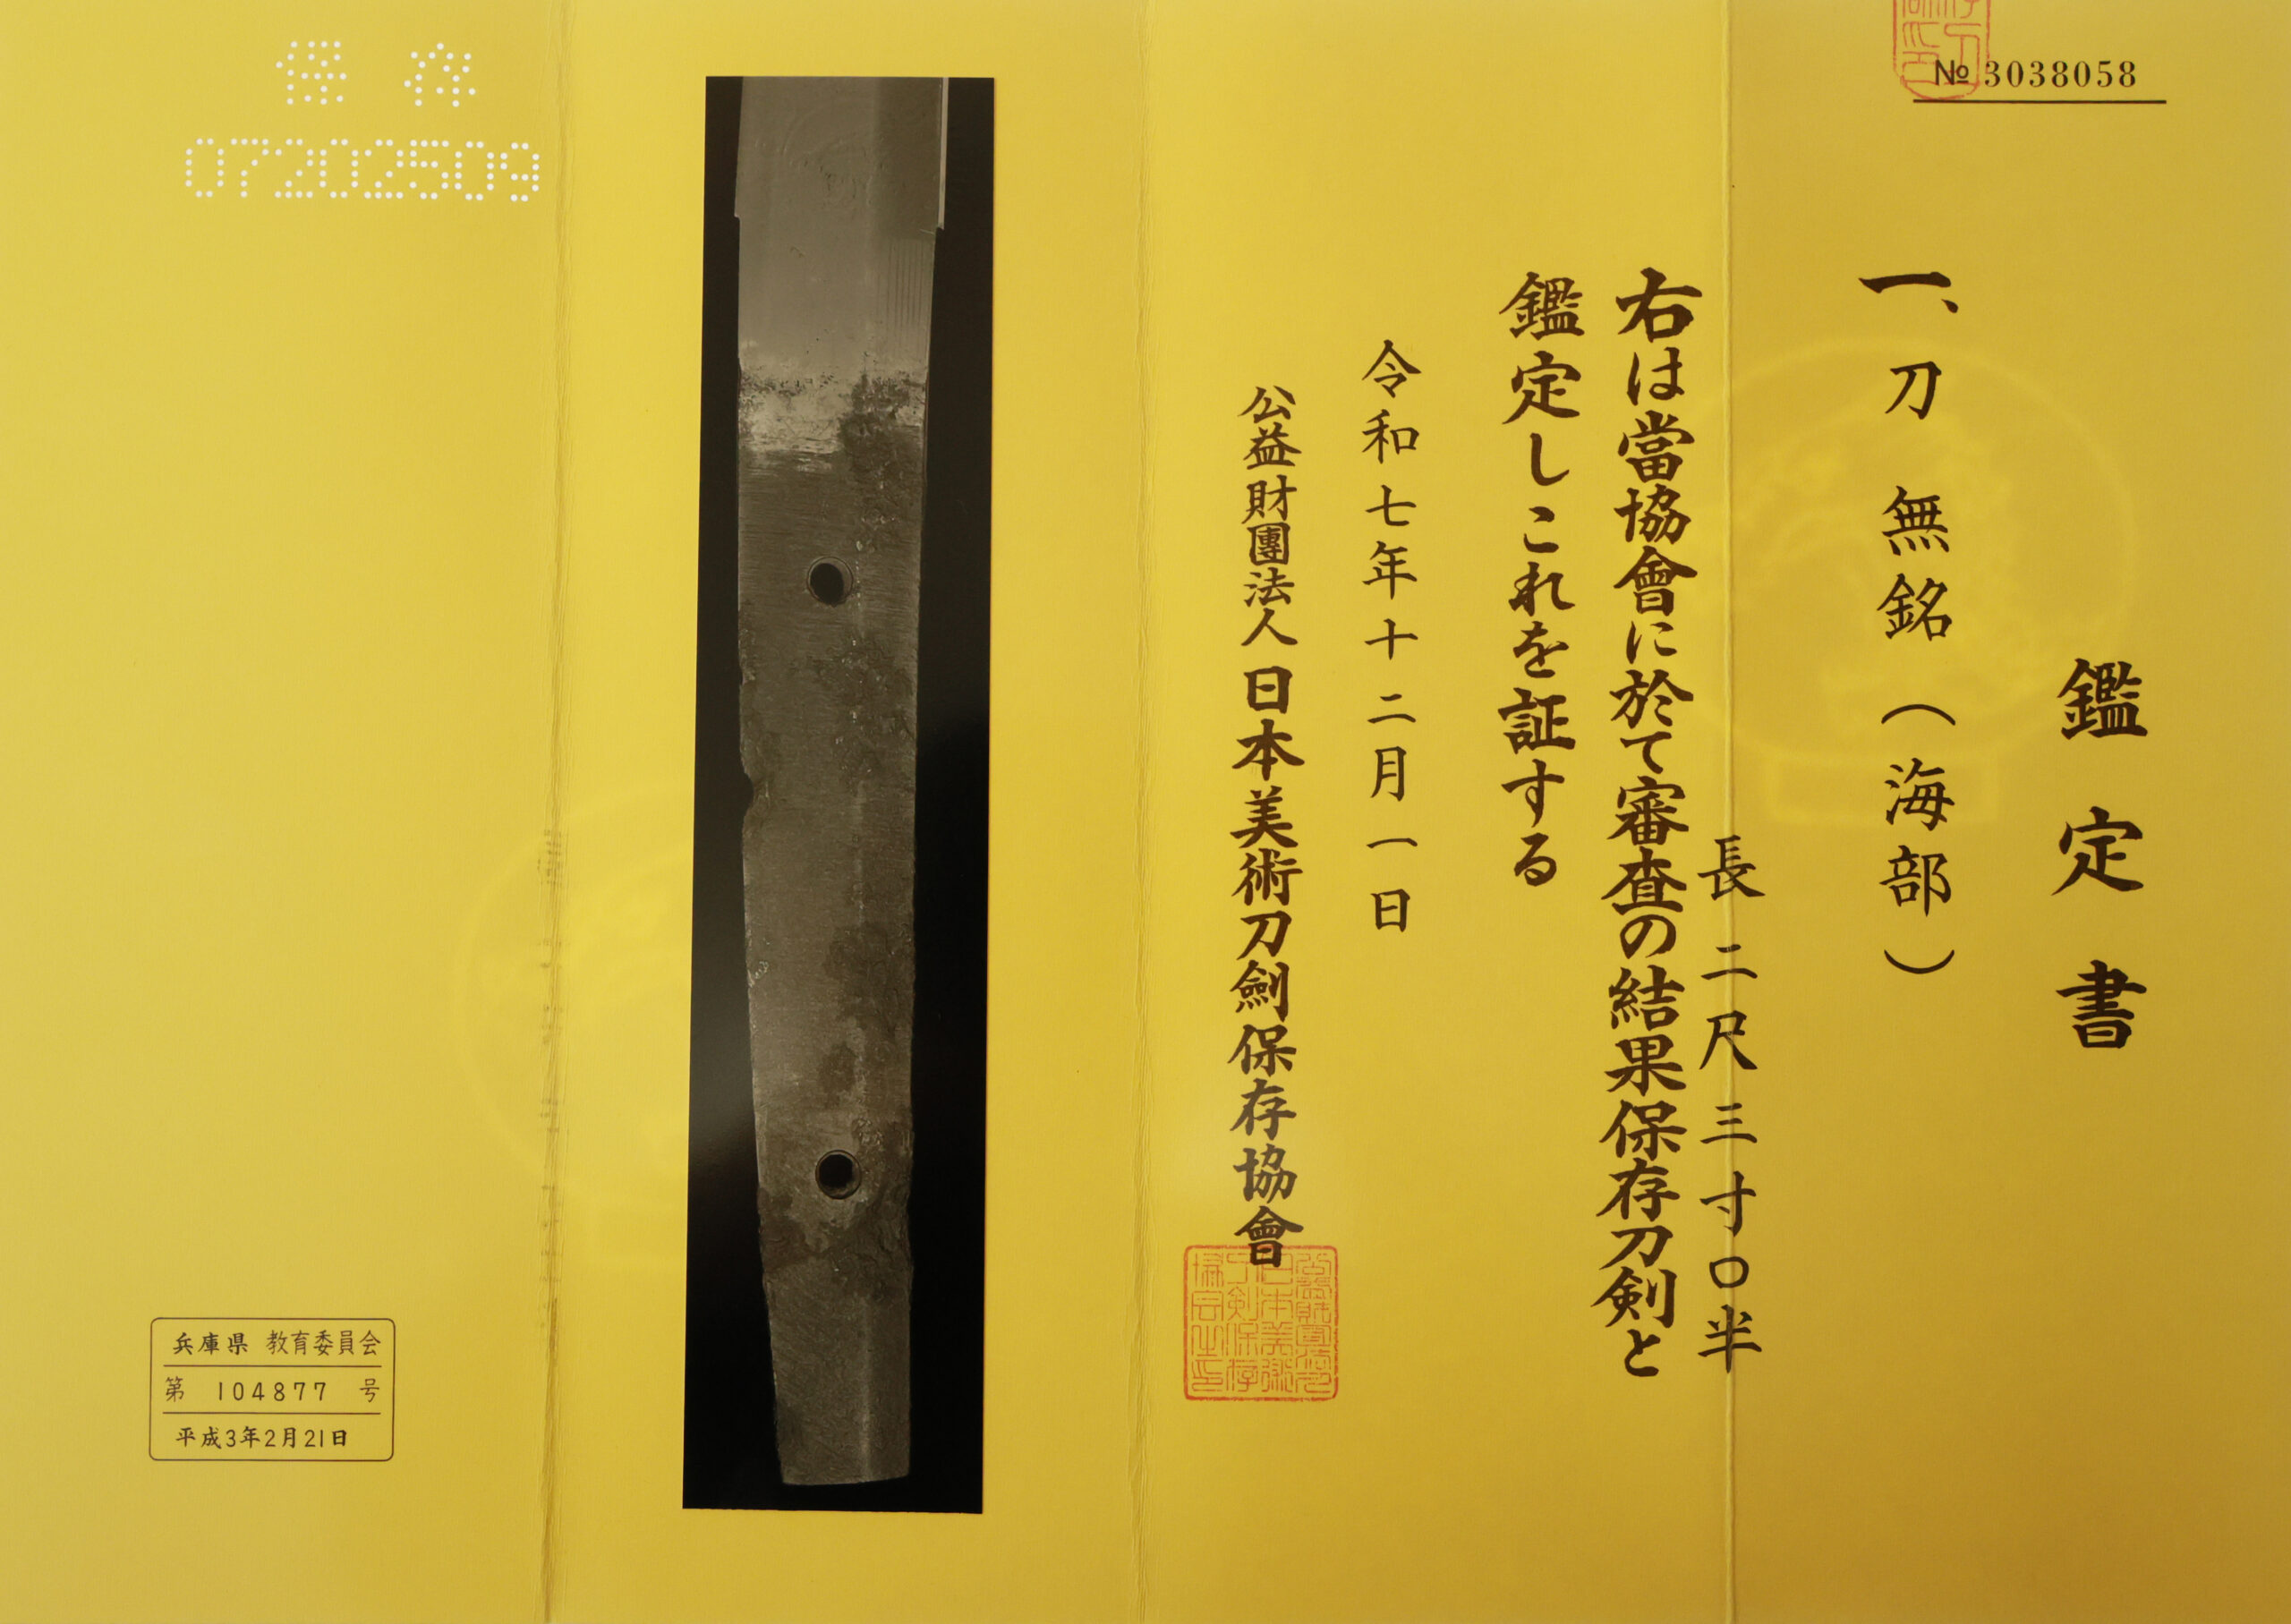 № 3038058
鑑定書
一、刀 無銘（海部）
長 二尺三寸〇半
右は當協會に於て審査の結果保存刀剣と
鑑定しこれを証する
令和七年十二月一日
公益財團法人 日本美術刀劍保存協會
保存
07202509
兵庫県 教育委員会
第 104877 号
平成3年2月21日